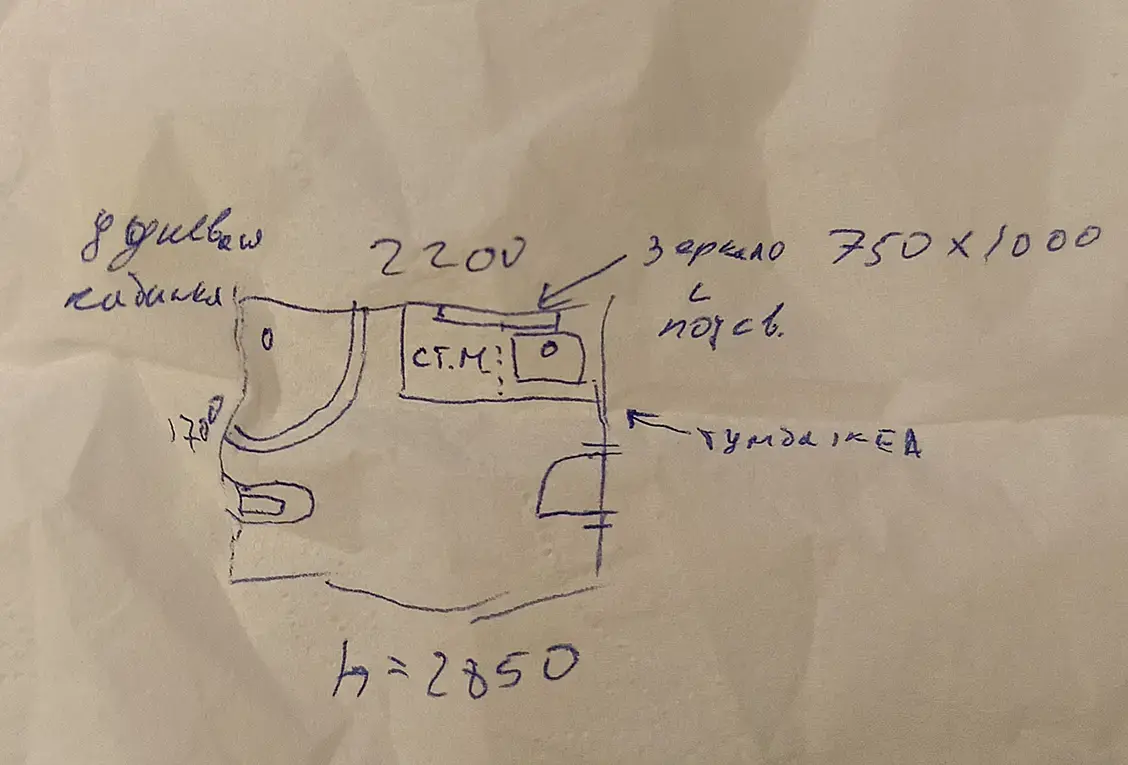 Душевая
кабинка
2200
зеркало 750 x 1000
с
подсв.
ст.м
1700
тумба IKEA
h = 2850